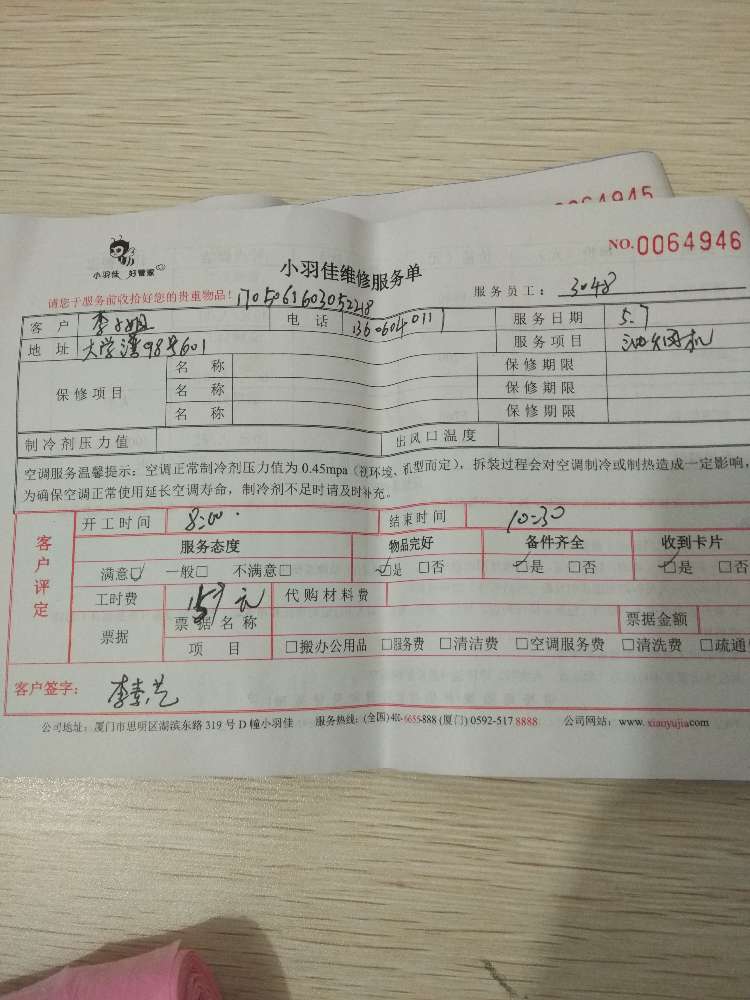 0064945
NO.0064946
小羽佳 好管家
小羽佳维修服务单
请您于服务前收拾好您的贵重物品！
服务员工： 3048
客户 李小姐 电话 服务日期 5.7
地址 大学湾98号601 服务项目 油烟机
保修项目 名称 保修期限
名称 保修期限
名称 保修期限
制冷剂压力值 出风口温度
空调服务温馨提示：空调正常制冷剂压力值为 0.45mpa（视环境、机型而定），拆装过程会对空调制冷或制热造成一定影响，
为确保空调正常使用延长空调寿命，制冷剂不足时请及时补充。
客户评定
开工时间 8:00 结束时间 10:30
服务态度 物品完好 备件齐全 收到卡片
满意☑ 一般□ 不满意□ ☑是 □否 ☑是 □否 ☑是 □否
工时费 157元 代购材料费
票据 票据名称 票据金额
项目 □搬办公用品 □服务费 □清洁费 □空调服务费 □清洗费 □疏通
客户签字： 李素艺
公司地址：厦门市思明区湖滨东路 319 号 D 幢小羽佳 服务热线：(全国)400-6655-888 (厦门) 0592-517 8888 公司网站：www.xiaoyujia.com